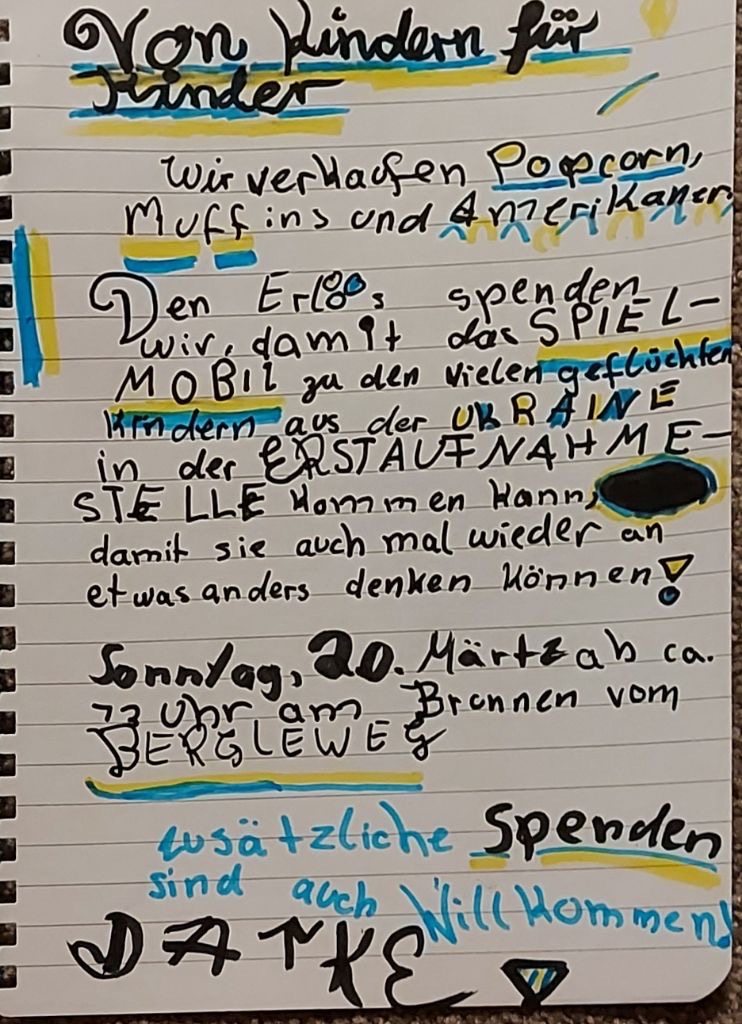 Von Kindern für
Kinder
Wir verkaufen Popcorn,
Muffins und Amerikaner.
Den Erlös spenden
wir, damit das SPIEL-
MOBIL zu den vielen geflüchten
Kindern aus der UKRAINE
in der ERSTAUFNAHME-
STELLE kommen kann,
damit sie auch mal wieder an
etwas anders denken können!
Sonntag, 20. Märtz ab ca.
13 Uhr am Brunnen vom
BERGLEWEG
zusätzliche Spenden
sind auch Willkommen!
DANKE